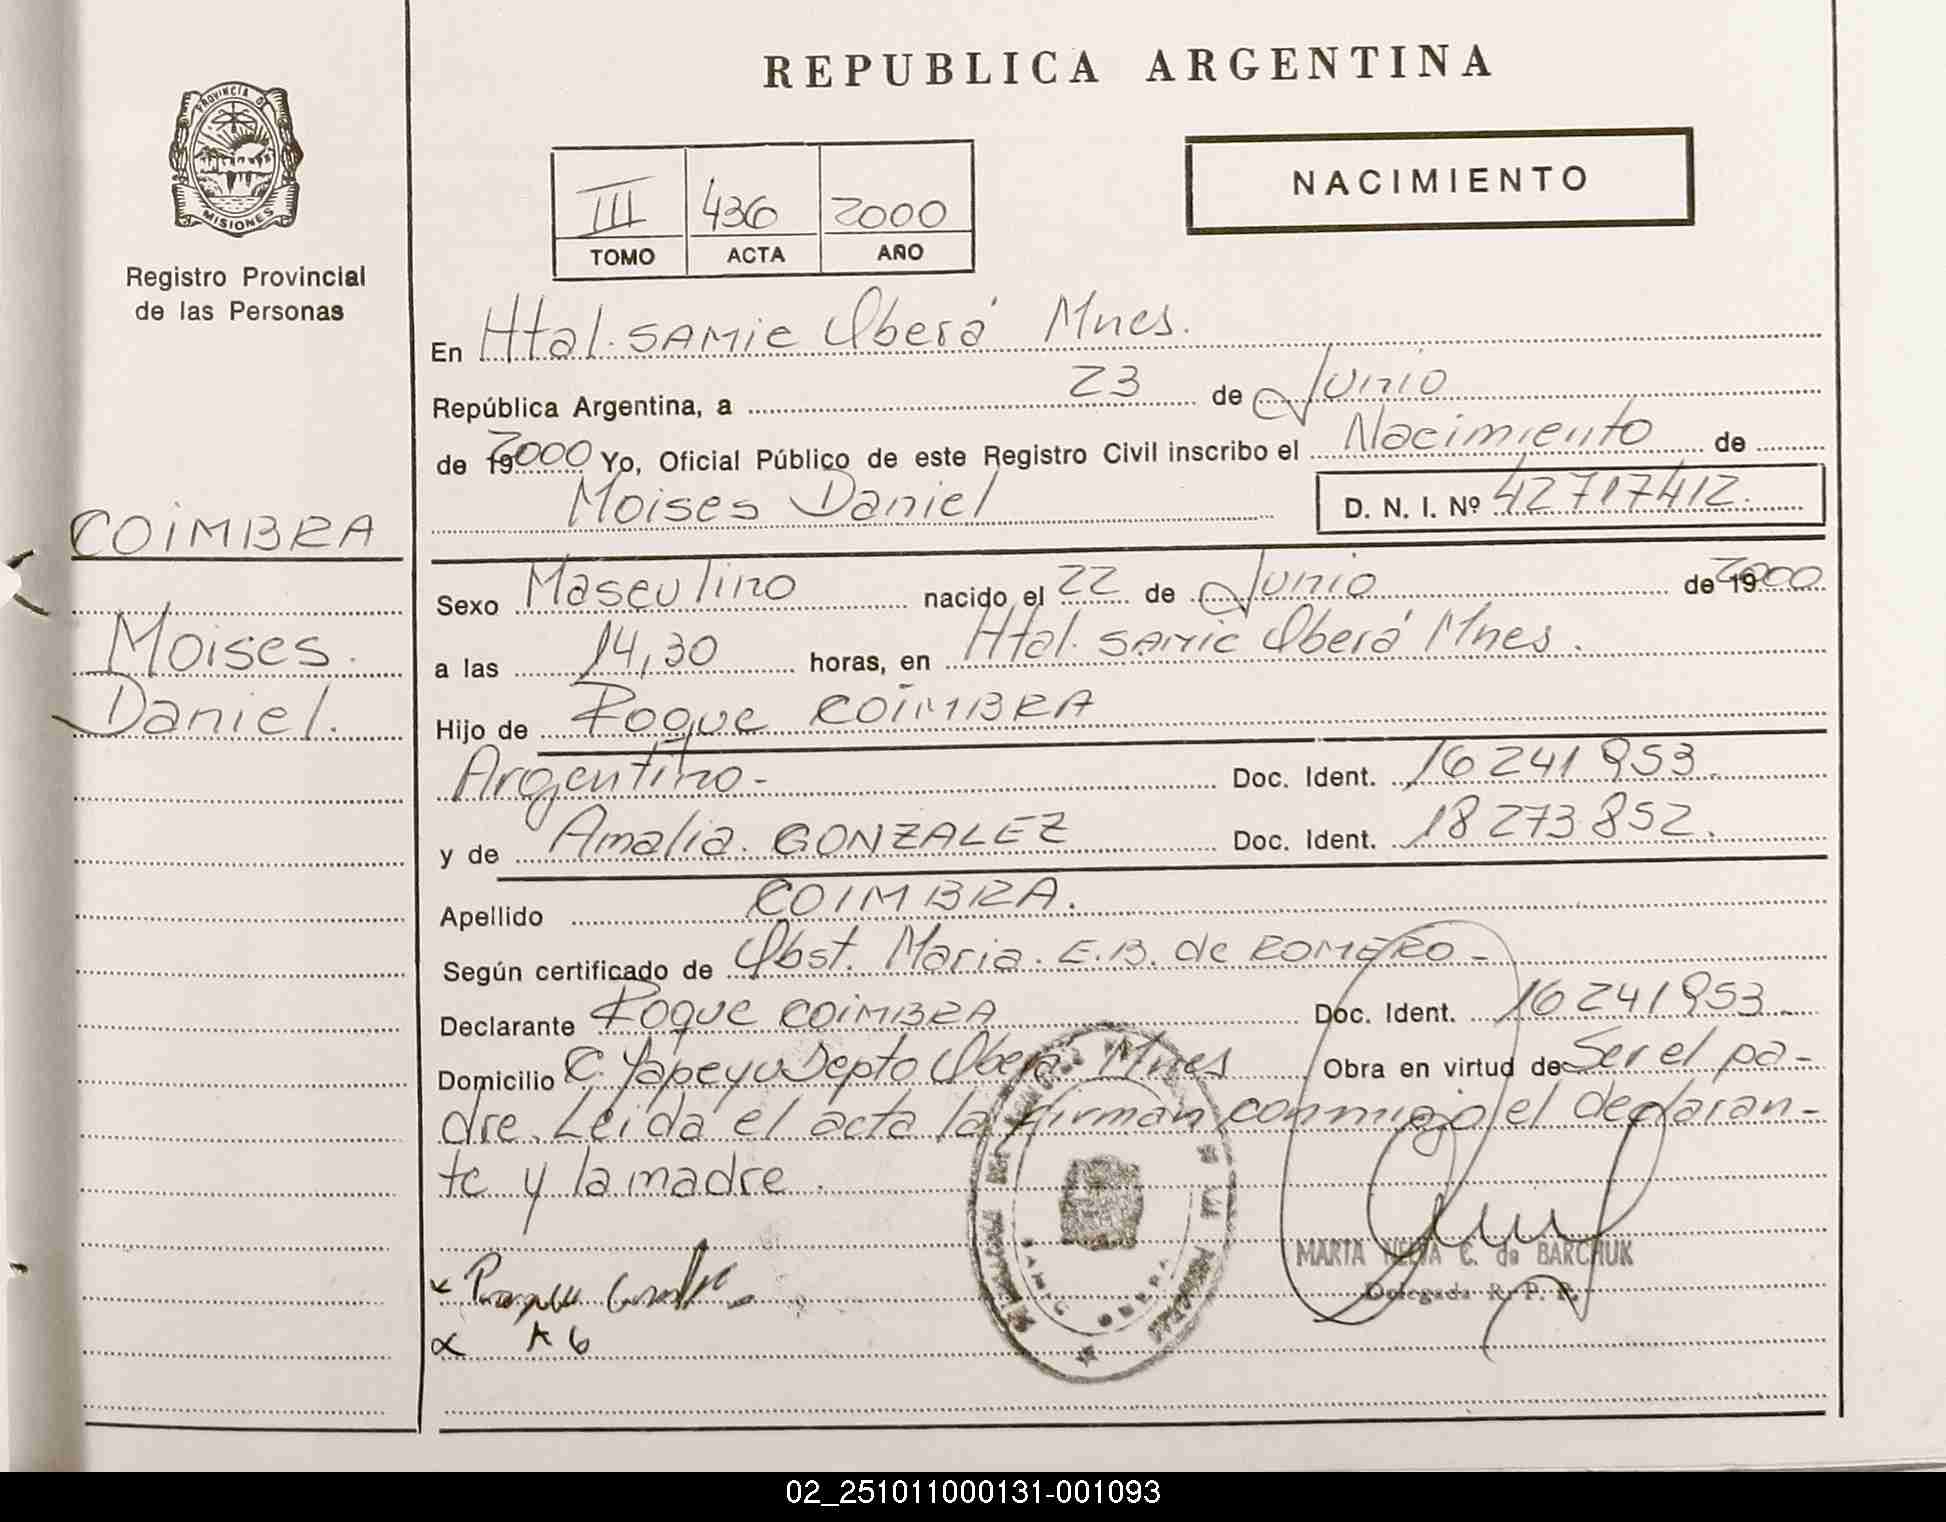 REPUBLICA ARGENTINA
PROVINCIA DE
MISIONES
Registro Provincial
de las Personas
III 436 2000
TOMO ACTA AÑO
NACIMIENTO
En Htal. SAMIC Oberá Mnes.
República Argentina, a 23 de Junio
de 19 2000 Yo, Oficial Público de este Registro Civil inscribo el Nacimiento de
Moises Daniel D. N. I. Nº 42717412.
COIMBRA
Moises.
Daniel.
Sexo Masculino nacido el 22 de Junio de 19 2000
a las 14,30 horas, en Htal. SAMIC Oberá Mnes.
Hijo de Roque COIMBRA
Argentino- Doc. Ident. 16241953.
y de Amalia. GONZALEZ Doc. Ident. 18273852.
Apellido COIMBRA.
Según certificado de Obst. Maria. E.B. de ROMERO-
Declarante Roque COIMBRA Doc. Ident. 16241953.
Domicilio C. Yapeyu Depto Oberá Mnes Obra en virtud de Ser el pa-
dre. Leida el acta la firman conmigo el declaran-
te y la madre.
MARIA C. de BARCHUK
Delegada R. P. P.
SAMIC OBERA
02_251011000131-001093